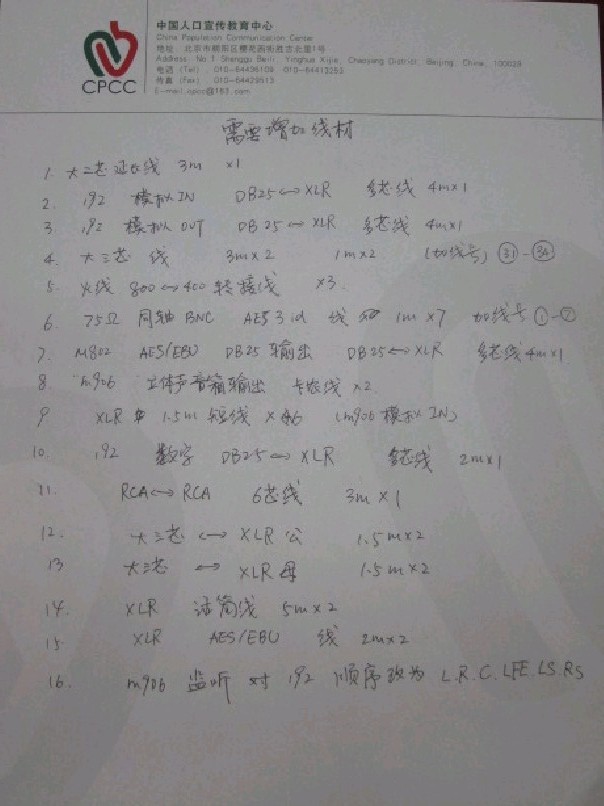 CPCC
中国人口宣传教育中心
China Population Communication Center
地址 北京市朝阳区樱花西街胜古北里1号
Address No.1 Shenggu Beili Yinghua Xijie, Chaoyang District, Beijing, China, 100029
电话(Tel) 010-64436109 010-64413253
传真(Fax) 010-64429513
E-mail:cpcc@163.com
需要增加线材
1. 大二芯延长线 3m ×1
2. 192 模拟IN DB25↔XLR 多芯线 4m×1
3 192 模拟OUT DB25↔XLR 多芯线 4m×1
4. 大三芯 线 3m×2 1m×2 (加线号) ㉛-㉞
5. 火线 800↔400 转接线 ×3.
6. 75Ω 同轴 BNC AES3id 线 1m×7 加线号①-⑦
7. M802 AES/EBU DB25 输出 DB25↔XLR 多芯线4m×1
8. m906 立体声音箱输出 卡农线×2
9 XLR 1.5m短线 ×6 (m906模拟IN)
10. 192 数字 DB25↔XLR 多芯线 2m×1
11. RCA↔RCA 6芯线 3m×1
12. 大三芯 ↔ XLR公 1.5m×2
13 大三芯 ↔ XLR母 1.5m×2
14. XLR 话筒线 5m×2
15 XLR AES/EBU 线 2m×2
16. m906 监听 对 192 顺序改为 L.R.C.LFE.LS.RS